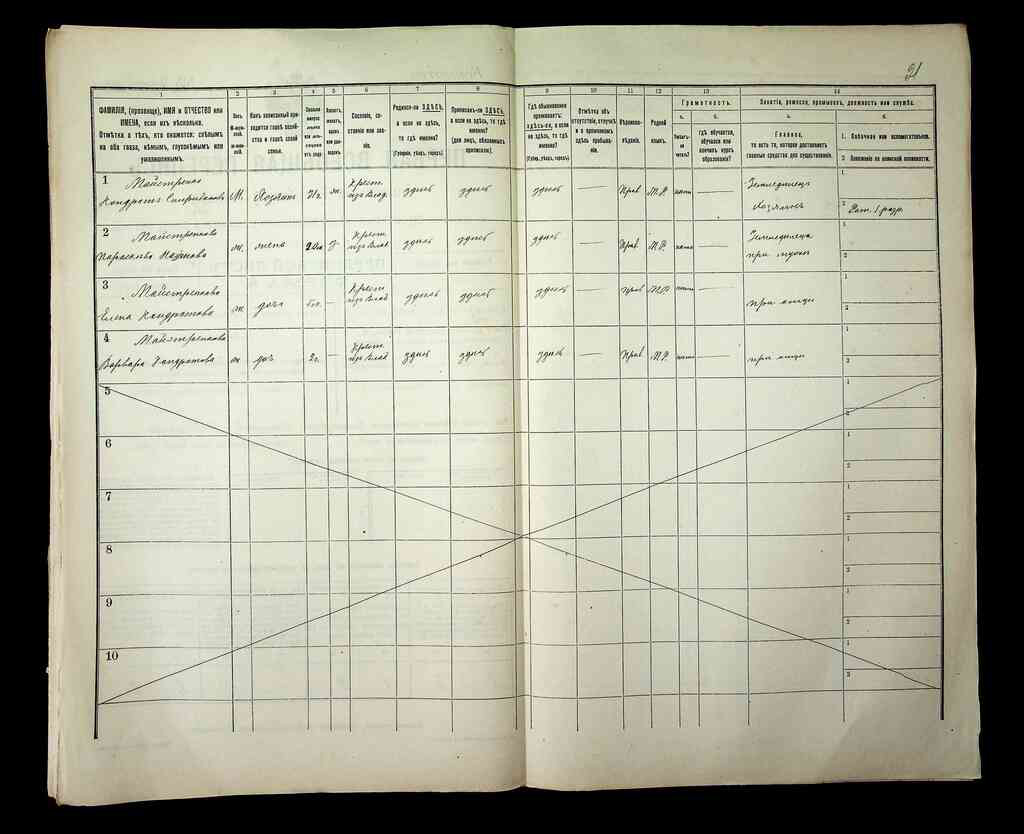 21
1 2 3 4 5 6 7 8 9 10 11 12 13 14
ФАМИЛІЯ, (прозвище), ИМЯ и ОТЧЕСТВО или
ИМЕНА, если ихъ нѣсколько.
Отмѣтка о тѣхъ, кто окажется: слѣпымъ
на оба глаза, нѣмымъ, глухонѣмымъ или
умалишеннымъ.
Полъ.
М-мужской.
Ж-женскій.
Какъ записанный приходится главѣ хозяйства и главѣ своей
семьи.
Сословіе, состояніе или званіе.
Родился-ли ЗДѢСЬ,
а если не здѣсь,
то гдѣ именно?
(Губернія, уѣздъ, городъ).
Приписанъ-ли ЗДѢСЬ,
а если не здѣсь, то гдѣ
именно?
(Для лицъ, обязанныхъ
припискою).
Гдѣ обыкновенно
проживаетъ:
здѣсь-ли, а если
не здѣсь, то гдѣ
именно?
(Губ., уѣздъ, городъ).
Отмѣтка объ
отсутствіи, отлучкѣ
и о временномъ
здѣсь пребываніи.
Вѣроисповѣданіе.
Родной
языкъ.
Грамотность.
а. б.
Умѣетъ-ли
читать?
гдѣ обучается,
обучался или
кончилъ курсъ
образованія?
Занятіе, ремесло, промыселъ, должность или служба.
а. б.
Главное,
то есть то, которое доставляетъ
главныя средства для существованія.
1. Побочное или вспомогательное.
2. Положеніе по воинской повинности.
1 Майстренко
Кондратъ Спиридоновъ М. Хозяинъ Крест. здѣсь здѣсь здѣсь Прав М.Р. Земледѣлецъ
Хозяинъ
1
2 Рат. 1 разр.
2 Майстренкова
Параскева ж. жена Крест здѣсь здѣсь здѣсь — Прав М.Р. — Земледѣлецъ
при мужѣ
1
2
3 Майстренкова
Елена Кондратова ж. дочь Крест здѣсь здѣсь здѣсь — Прав М.Р. — при отцѣ
1
2
4 Майстренкова
Варвара Кондратова ж. доч 2г. — Крест здѣсь здѣсь здѣсь — Прав М.Р. — при отцѣ
1
2
5 1
2
6 1
2
7 1
2
8 1
2
9 1
2
10 1
2